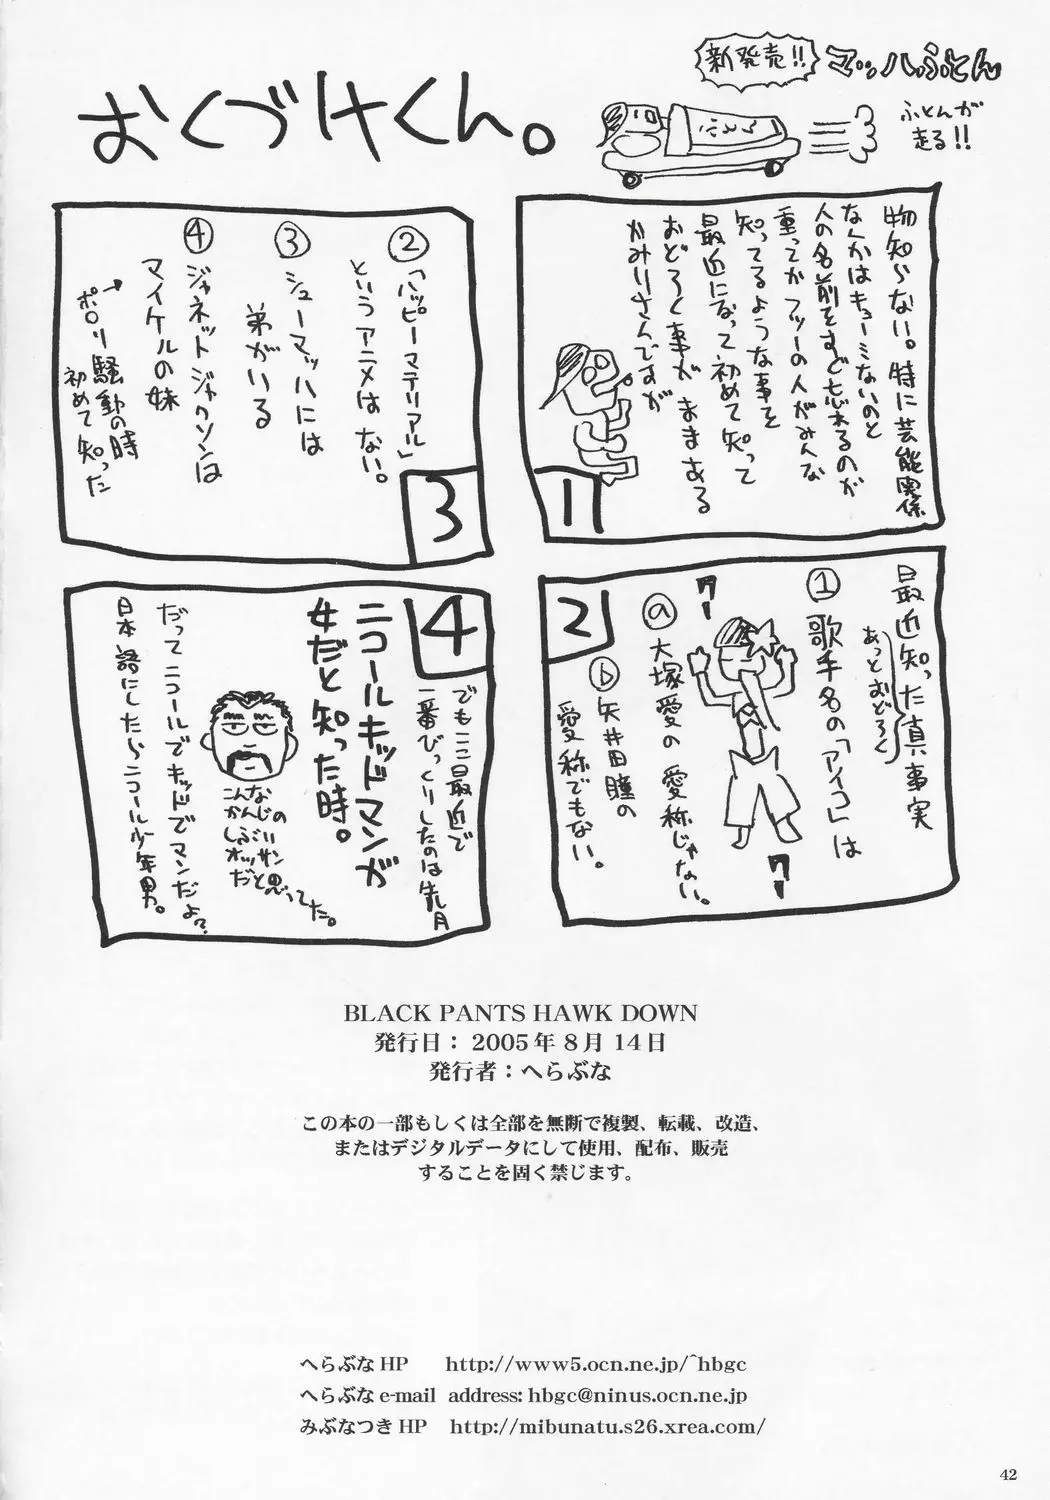 おくづけくん。
新発売!!
マッハふとん
ふとんが
走る!!
ふとん
物知らない。特に芸能関係
なんかはキョーミないのと
人の名前をすぐ忘れるのが
重ってかフツーの人がみんな
知ってるような事を
最近になって初めて知って
おどろく事がままある
かみりさんですが
1
最近知った真事実
あっとおどろく
① 歌手名の「アイコ」は
クー
クー
ⓐ 大塚愛の愛称じゃない。
ⓑ 矢井田瞳の
愛称でもない。
2
② 「ハッピーマテリアル」
というアニメはない。
③ シューマッハには
弟がいる
④ ジャネットジャクソンは
マイケルの妹
→ポロリ騒動の時
初めて知った
3
4
でもここ最近で
一番びっくりしたのは先月
ニコールキッドマンが
女だと知った時。
こんな
かんじの
しぶい
オッサン
だと思ってた。
だってニコールでキッドでマンだよ?
日本語にしたらニコール少年男。
BLACK PANTS HAWK DOWN
発行日： 2005年 8月 14日
発行者：へらぶな
この本の一部もしくは全部を無断で複製、転載、改造、
またはデジタルデータにして使用、配布、販売
することを固く禁じます。
へらぶな HP http://www5.ocn.ne.jp/~hbgc
へらぶな e-mail address: hbgc@ninus.ocn.ne.jp
みぶなつき HP http://mibunatu.s26.xrea.com/
42